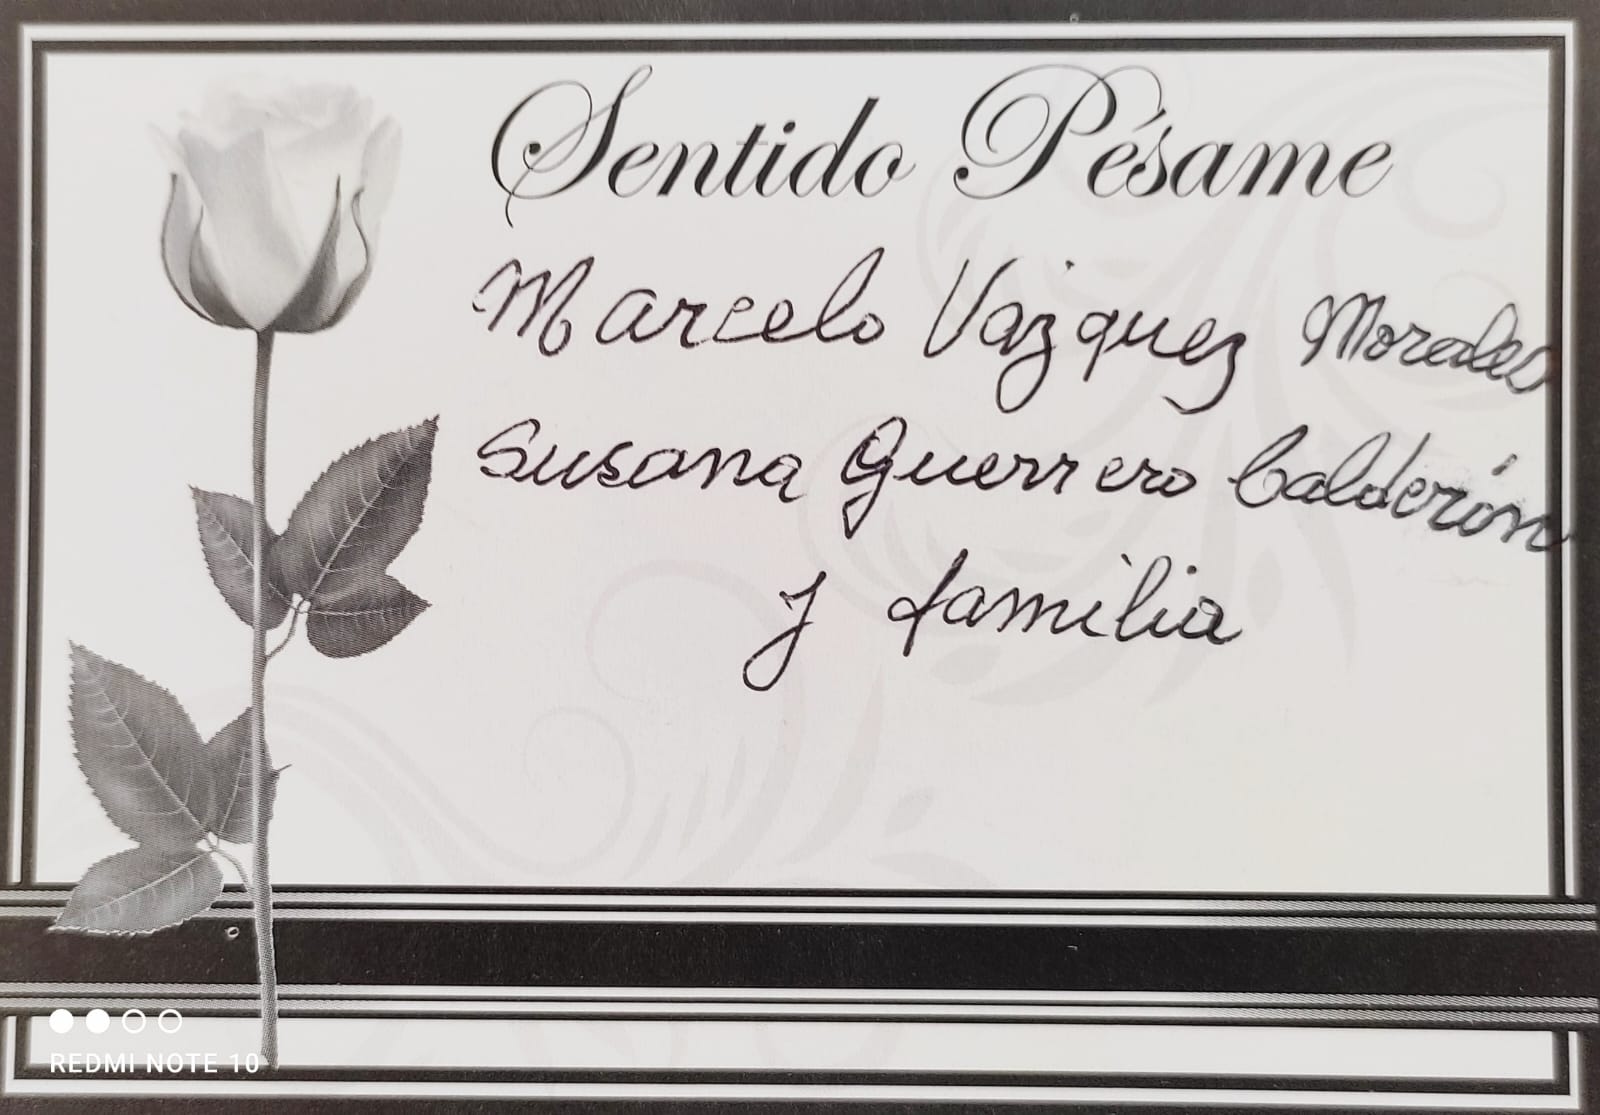 Sentido Pésame
Marcelo Vazquez Morales
Susana Guerrero Calderón
y familia
REDMI NOTE 10